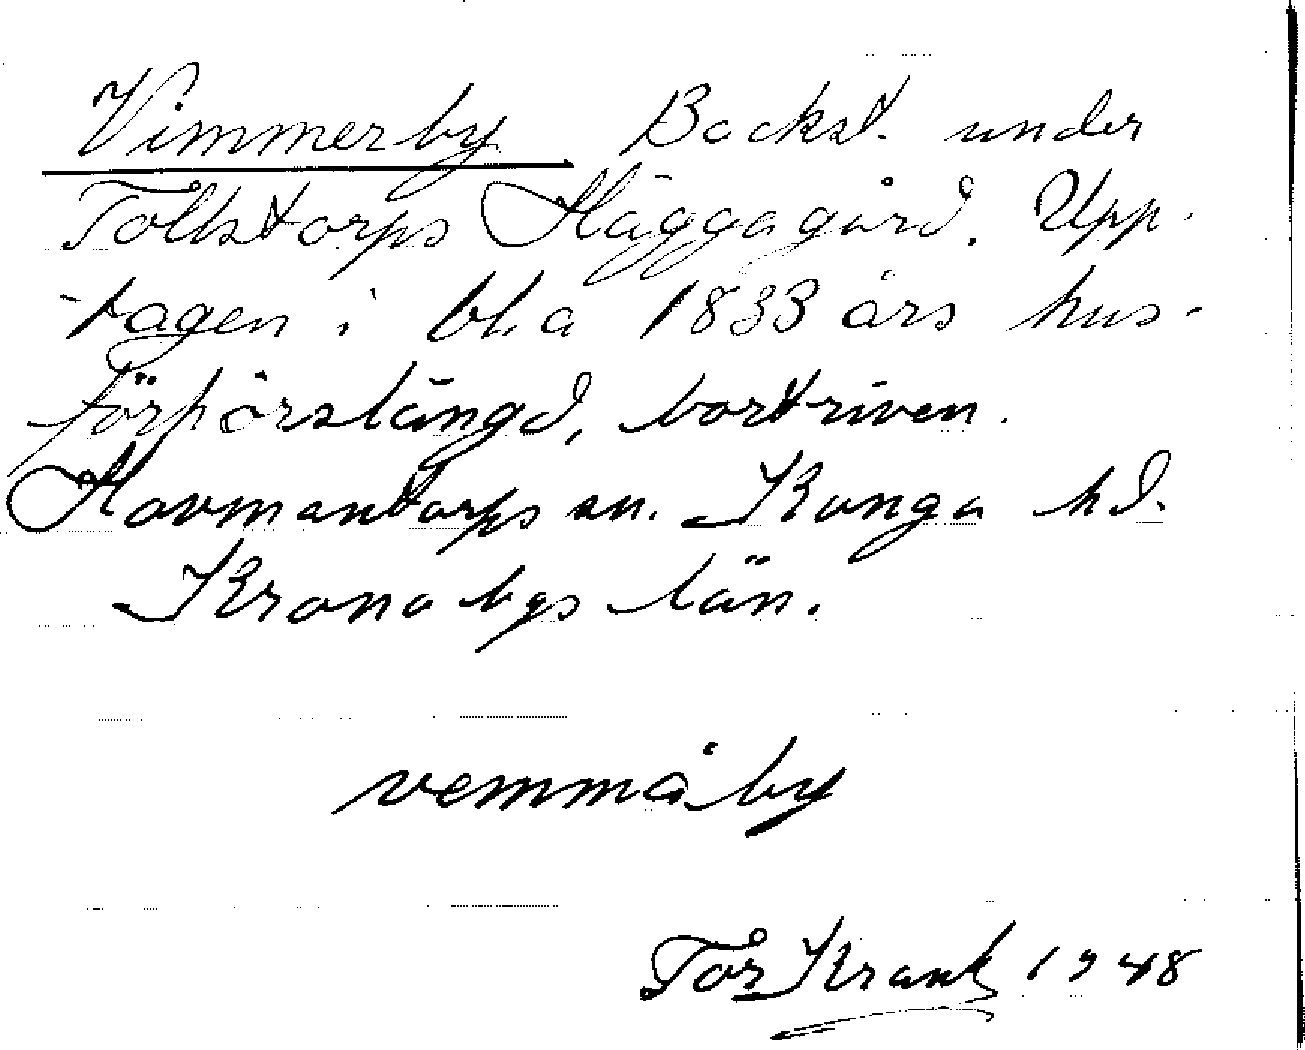 Vimmerby Backst. under
Tollstorps Häggagård. Upp-
tagen i bl.a 1833 års hus-
förhörslängd, bortriven.
Hovmantorps sn. Konga hd.
Kronobgs län.
vemmåby
Tor Krank 1948